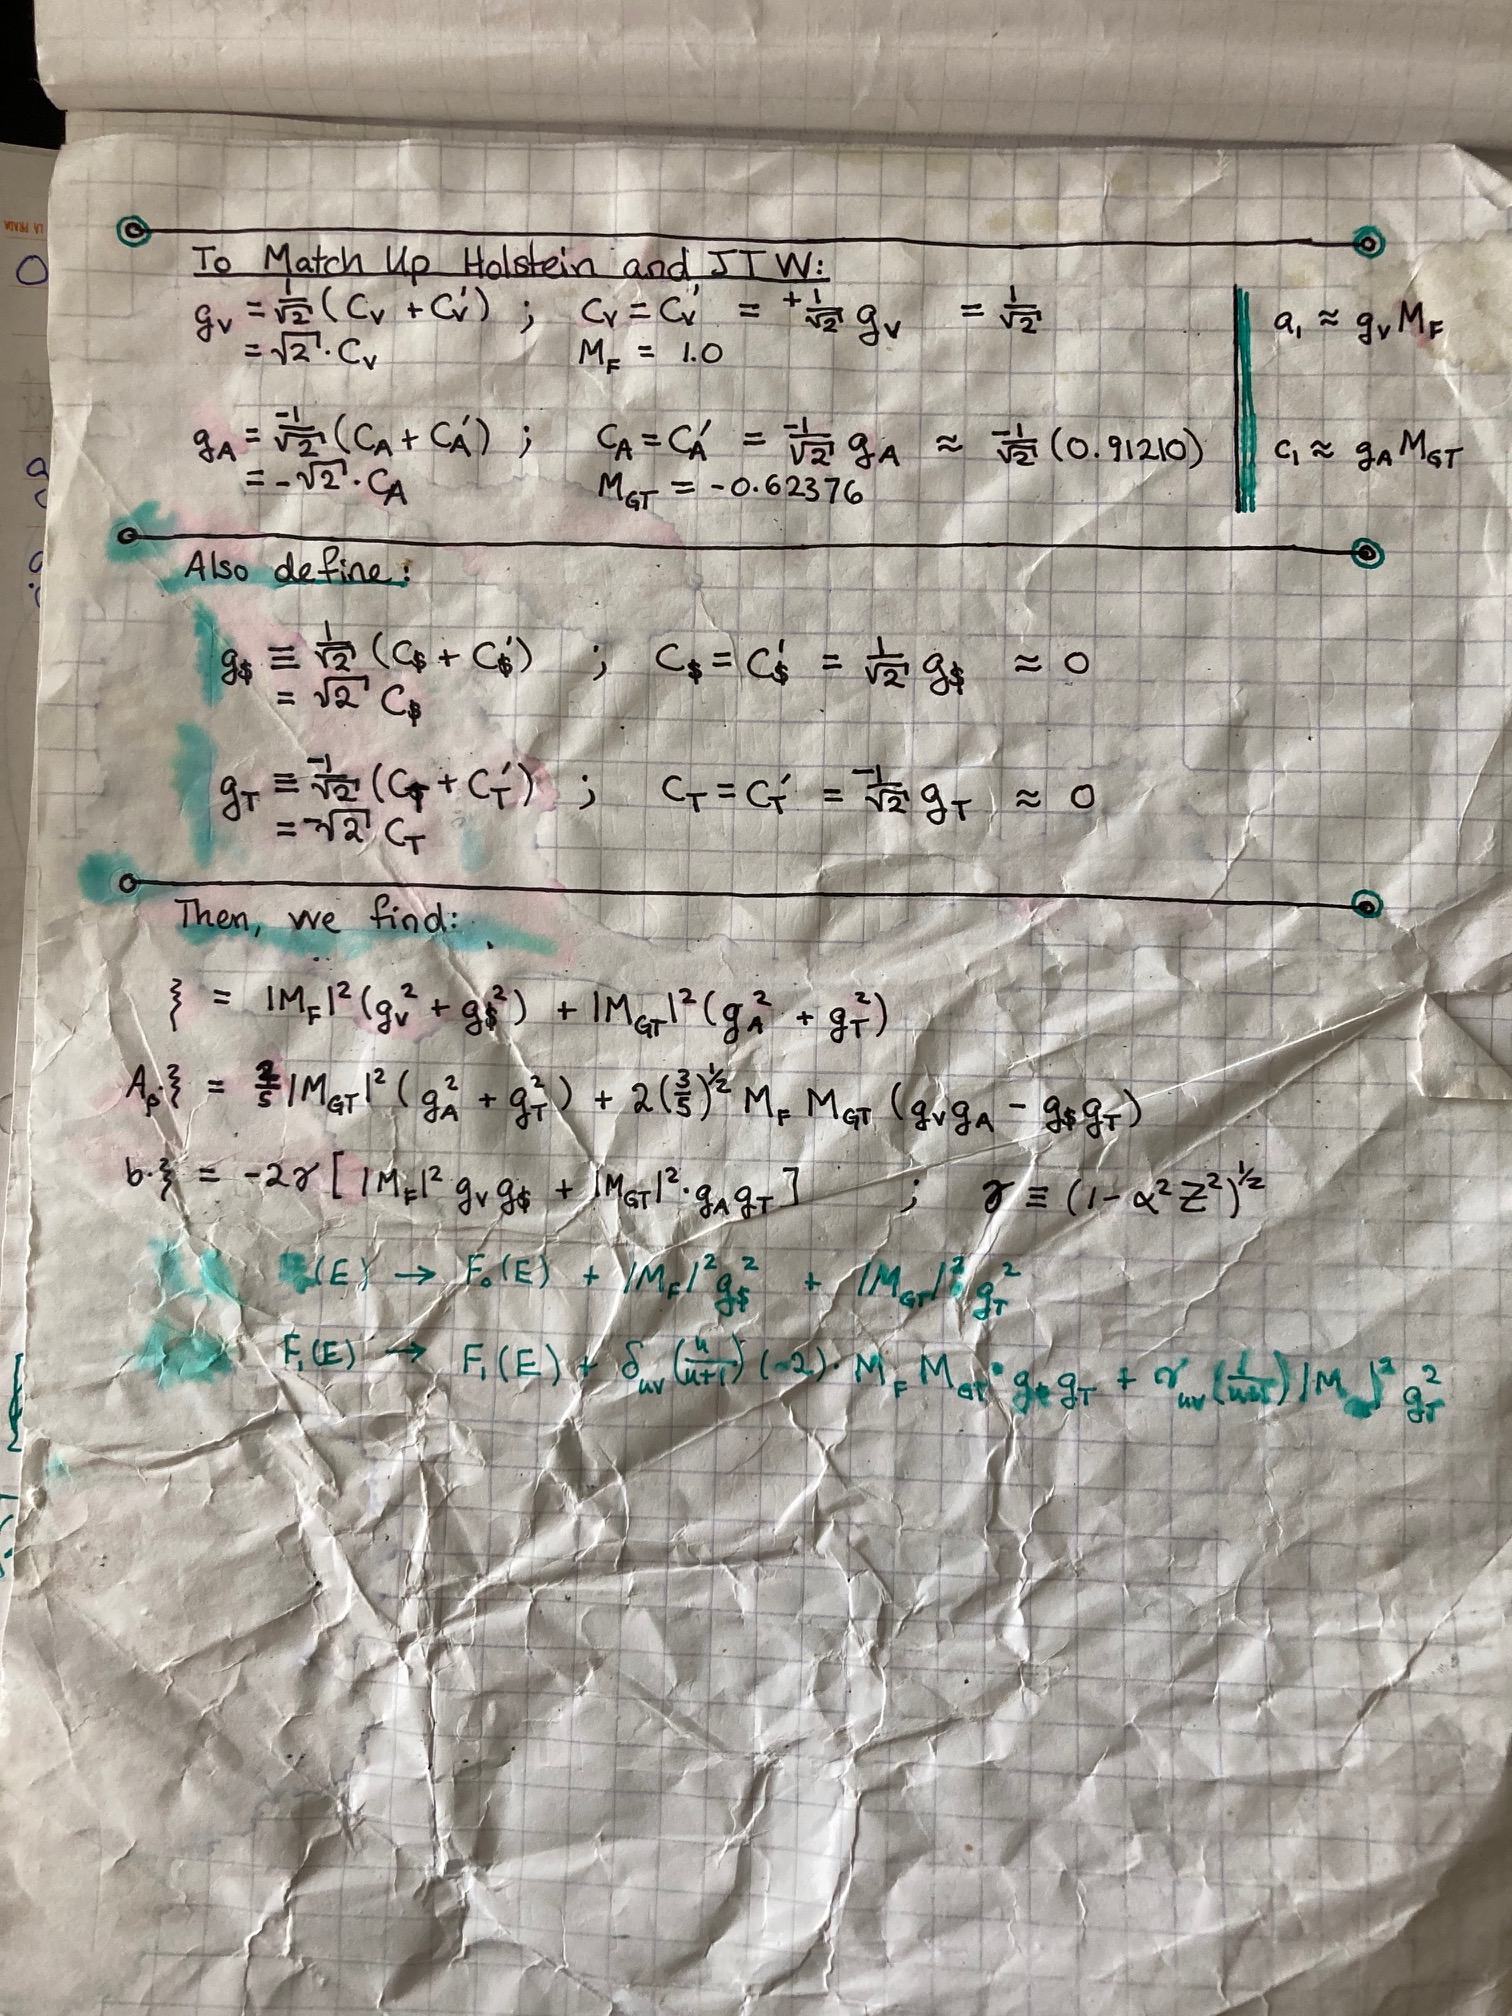 To Match Up Holstein and JTW:
g_V = 1/√2 (C_V + C_V') ; C_V = C_V' = +1/√2 g_V = 1/√2
= √2 · C_V M_F = 1.0
a₁ ≈ g_V M_F
g_A = -1/√2 (C_A + C_A') ; C_A = C_A' = -1/√2 g_A ≈ -1/√2 (0.91210)
= -√2 · C_A M_GT = -0.62376
c₁ ≈ g_A M_GT
Also define:
g_$ ≡ 1/√2 (C_$ + C_$') ; C_$ = C_$' = 1/√2 g_$ ≈ 0
= √2 C_$
g_T ≡ -1/√2 (C_T + C_T') ; C_T = C_T' = -1/√2 g_T ≈ 0
= -√2 C_T
Then, we find:
ξ = |M_F|² (g_V² + g_$²) + |M_GT|² (g_A² + g_T²)
A_β·ξ = 2/5 |M_GT|² (g_A² + g_T²) + 2(3/5)^½ M_F M_GT (g_V g_A - g_$ g_T)
b·ξ = -2γ [ |M_F|² g_V g_$ + |M_GT|² · g_A g_T ] ; γ ≡ (1 - α² Z²)^½
(E) → F₀(E) + |M_F|² g_$² + |M_GT|² g_T²
F₁(E) → F₁(E) + δ_uv (u/(u+1)) (-2) · M_F M_GT · g_$ g_T + γ_uv (1/(u+1)) |M |² g_T²